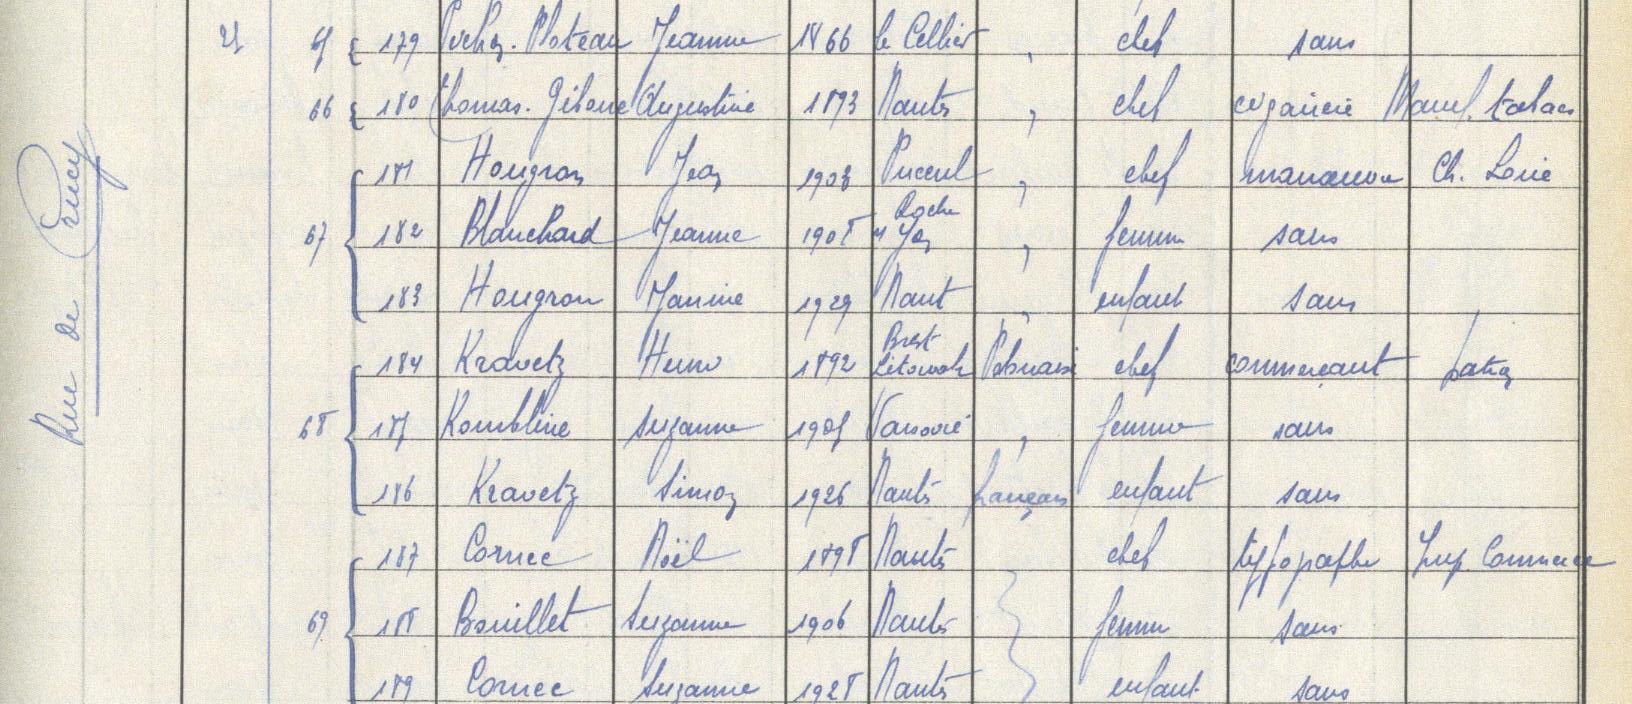 Rue de Crucy
21 65 179 Plateau Jeanne 1866 le Cellier " chef sans
66 180 Thomas. Gibone Augustine 1893 Nantes " chef cigarière Manuf. tabacs
181 Hougron Jean 1903 Puceul " chef manœuvre Ch. Loire
67 182 Blanchard Jeanne 1905 Roche s/ Yon " femme sans
183 Hougron Janine 1929 Nant " enfant sans
184 Kravetz 1892 Brest Litowsk Polonais chef commerçant patron
68 185 Kombline Suzanne 1905 Varsovie " femme sans
186 Kravetz Simon 1926 Nantes français enfant sans
187 Cornec Noël 1898 Nantes chef typographe Imp. Commerce
69 188 Bouillet Suzanne 1906 Nantes femme sans
189 Cornec Suzanne 1928 Nantes enfant sans